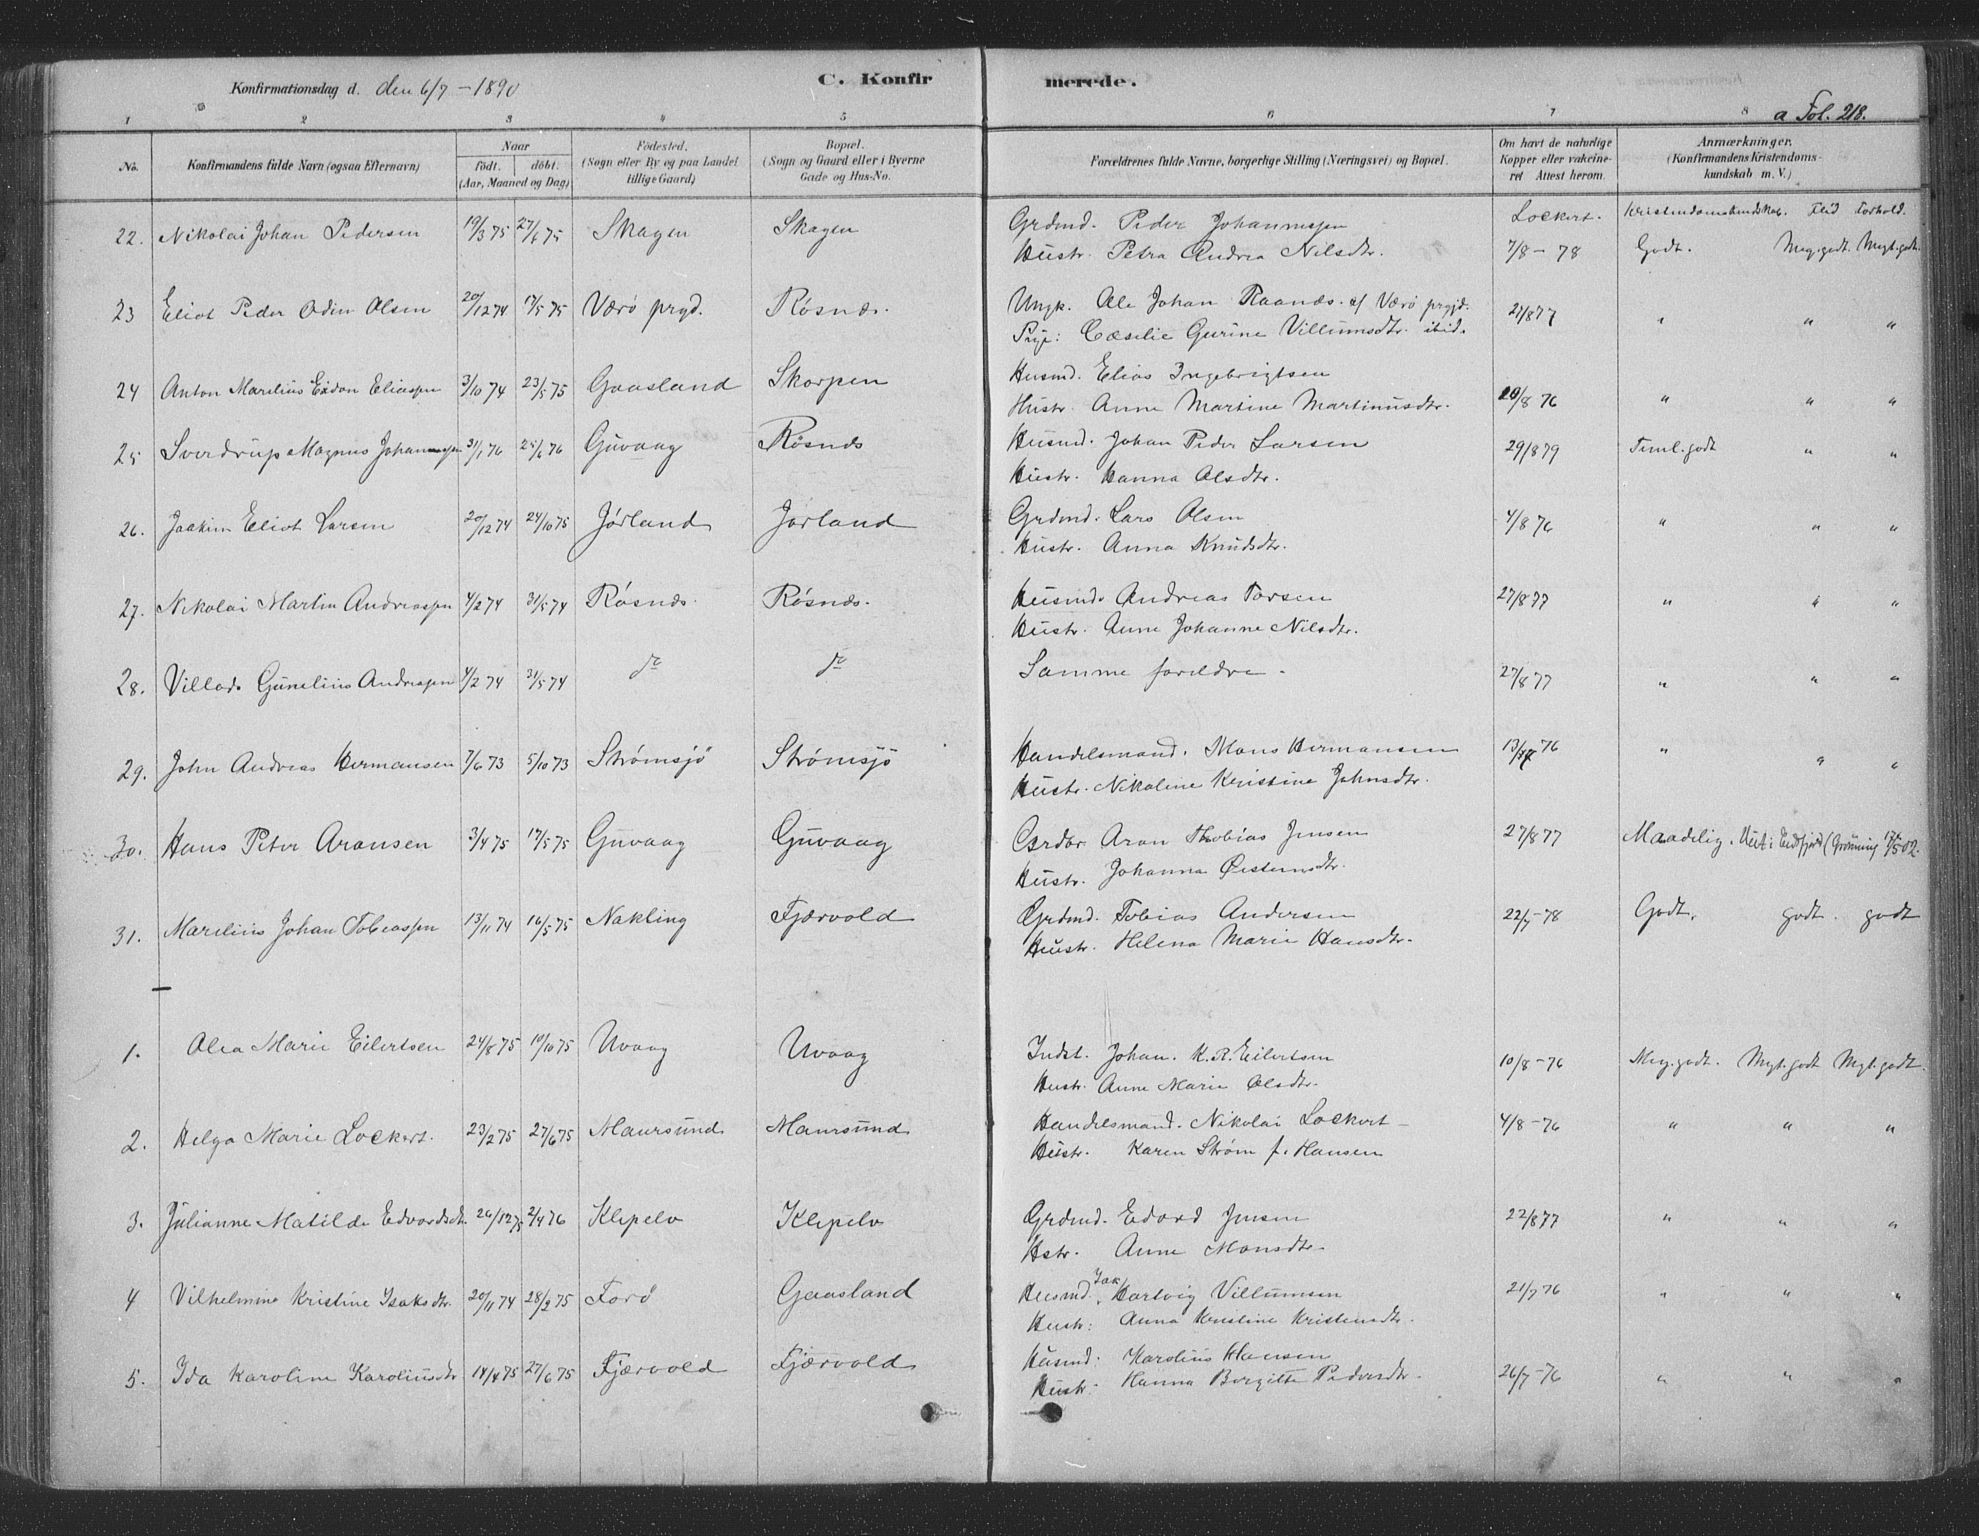 Konfirmationsdag d. den 6/7 - 1890
C. Konfirmerede.
a Fol. 218.
1 2 3 4 5 6 7 8
No.
Konfirmandens fulde Navn (ogsaa Efternavn)
Naar
født. døbt.
(Aar, Maaned og Dag)
Fødested.
(Sogn eller By og paa Landet
tillige Gaard)
Bopæl.
(Sogn og Gaard eller i Byerne
Gade og Hus-No.
Forældrenes fulde Navne, borgerlige Stilling (Næringsvei) og Bopæl.
Om havt de naturlige
Kopper eller vakcine-
ret Attest herom.
Anmærkninger.
(Konfirmandens Kristendoms-
kundskab m. V.)
Lockert. Kristendomskundskab. Flid Forhold.
22. Nikolai Johan Pedersen 19/3 75 27/6 75 Skagen Skagen Grdmd. Peder Johannessen
Hustr. Petra Andrea Nilsdtr. 7/8 - 78 Godt. Meg.godt. Megt.godt.
23 Eliot Peder Odin Olsen 20/12 74 17/5 75 Værø prgd. Røsnæs. Ungk. Ole Johan Raanæs. af Værø prgjd. 27/8 77 " " "
Pige: Cæselie Gurine Villumsdtr. ibid.
24 Anton Marelius Eidon Eliassen 3/10 74 23/5 75 Gaasland Skorpen Husmd. Elias Ingebrigtsen
Hustr. Anne Martine Martinusdtr. 20/8 76 " " "
25 Sverdrup Magnus Johannessen 31/1 76 25/6 76 Guvaag Røsnæs Husmd. Johan Peder Larsen 29/8 79 Teml.godt " "
Hustr. Hanna Olsdtr.
26. Joakim Eliot Larsen 20/12 74 24/10 75 Jørland Jørland Grdmd. Lars Olsen 4/8 76 " " "
Hustr. Anna Knudsdtr.
27. Nikolai Martin Andreassen 4/2 74 31/5 74 Røsnæs. Røsnæs. Husmd. Andreas Torsen 27/8 77 " " "
Hustr. Anne Johanne Nilsdtr.
28. Villads Gunelius Andreassen 4/2 74 31/5 74 do do Samme forældre. 27/8 77 " " "
29. John Andreas Hermansen 7/6 73 5/10 73 Strømsjö Strømsjö Handelsmand. Mons Hermansen 76 " " "
Hustr. Nikoline Kristine Johnsdtr.
30. Hans Peter Aronsen 3/4 75 17/5 75 Guvaag Guvaag Gardbr. Aron Thobias Jensen 27/8 77 Maadelig. Udt. i Eidsfjord (Grønning 5 02.
Hustr. Johanna Øisteinsdtr.
31. Marelius Johan Tobiassen 13/11 74 16/5 75 Nakling Fjærvold Grdmd. Tobias Andersen 22/7 - 78 Godt. godt. godt
Hustr. Helena Marie Hansdtr.
1. Olea Marie Eilertsen 24/8 75 10/10 75 Uvaag Uvaag Indst. Johan. K. R. Eilertsen 10/8 - 76 Meg.godt. Megt.godt Megt.godt.
Hustr. Anne Marie Olsdtr.
2. Helga Marie Lockert. 23/2 75 27/6 75 Maursund Maursund Handelsmand. Nikolai Lockert 4/8 - 76 " " "
Hustr. Karen Strøm f. Hansen
3. Julianne Matilde Edvardsdtr. 26/12 75 2/4 76 Klepelv Klepelv Grdmd. Edvard Jensen 22/8 77 " " "
Hstr. Anne Monsdtr.
4 Vilhelmine Kristine Isaksdtr. 20/11 74 28/2 75 Forø Gaasland Husmd. Isak Hartvig Villumsen 21/7 76 " " "
Hustr: Anna Kristine Kristensdtr.
5. Ida Karoline Karoliusdtr 14/4 75 27/6 75 Fjærvold Fjærvold Husmd: Karolius Hansen 26/7 - 76 " " "
Hustr. Hanna Bergitte Pedersdtr.